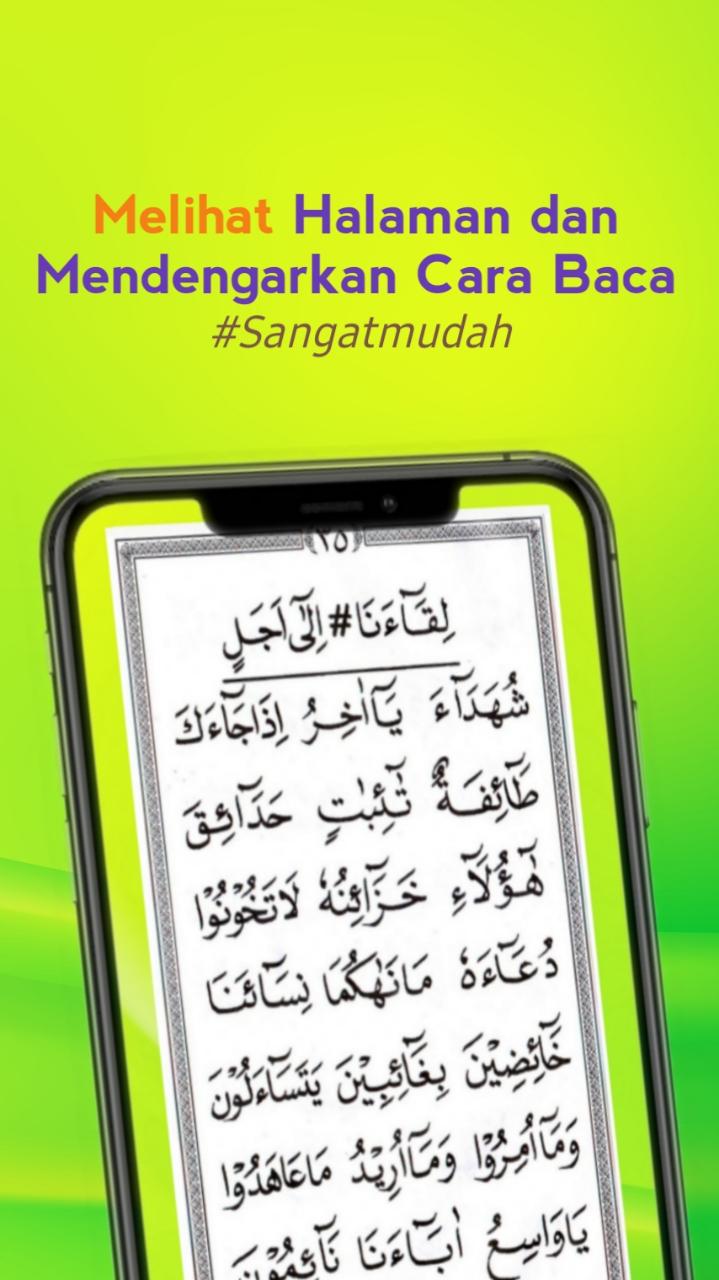 Melihat Halaman dan
Mendengarkan Cara Baca
#Sangatmudah
﴿٣٥﴾
لِقَآءَنَا # اِلٰٓى اَجَلٍ
شُهَدَآءَ يَآاٰخِرُ اِذَاجَآءَكَ
طَآئِفَةٌ تٰٓئِبٰتٍ حَدَآئِقَ
هٰٓؤُلَآءِ خَزَآئِنُهٗ لَاتَخُوْنُوْا
دُعَآءَهٗ مَانَهٰكُمَا نِسَآئَنَا
خَآئِضِيْنَ بِغَآئِبِيْنَ يَتَسَآءَلُوْنَ
وَمَآاُمِرُوْا وَمَآاُرِيْدُ مَاعَاهَدُوْا
يَاوَاسِعُ اٰبَآءَنَا نَآئِمُوْنَ